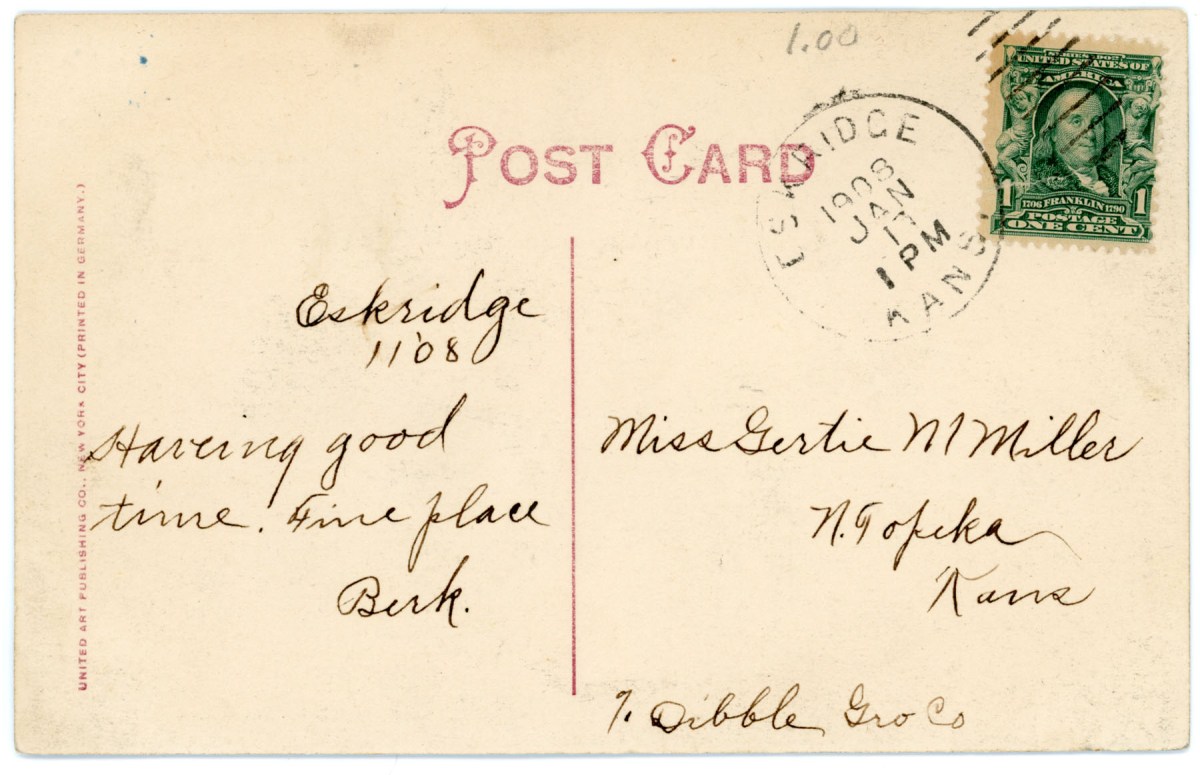 1.00
POST CARD
ESKRIDGE
1908
JAN
1 PM
KANS
SERIES 1902
UNITED STATES OF
AMERICA
1 1706 FRANKLIN 1790 1
POSTAGE
ONE CENT
UNITED ART PUBLISHING CO., NEW YORK CITY (PRINTED IN GERMANY.)
Eskridge
1 1 '08
Haveing good
time. Fine place
Berk.
Miss Gertie M Miller
N. Topeka
Kans
℅ Dibble Gro Co